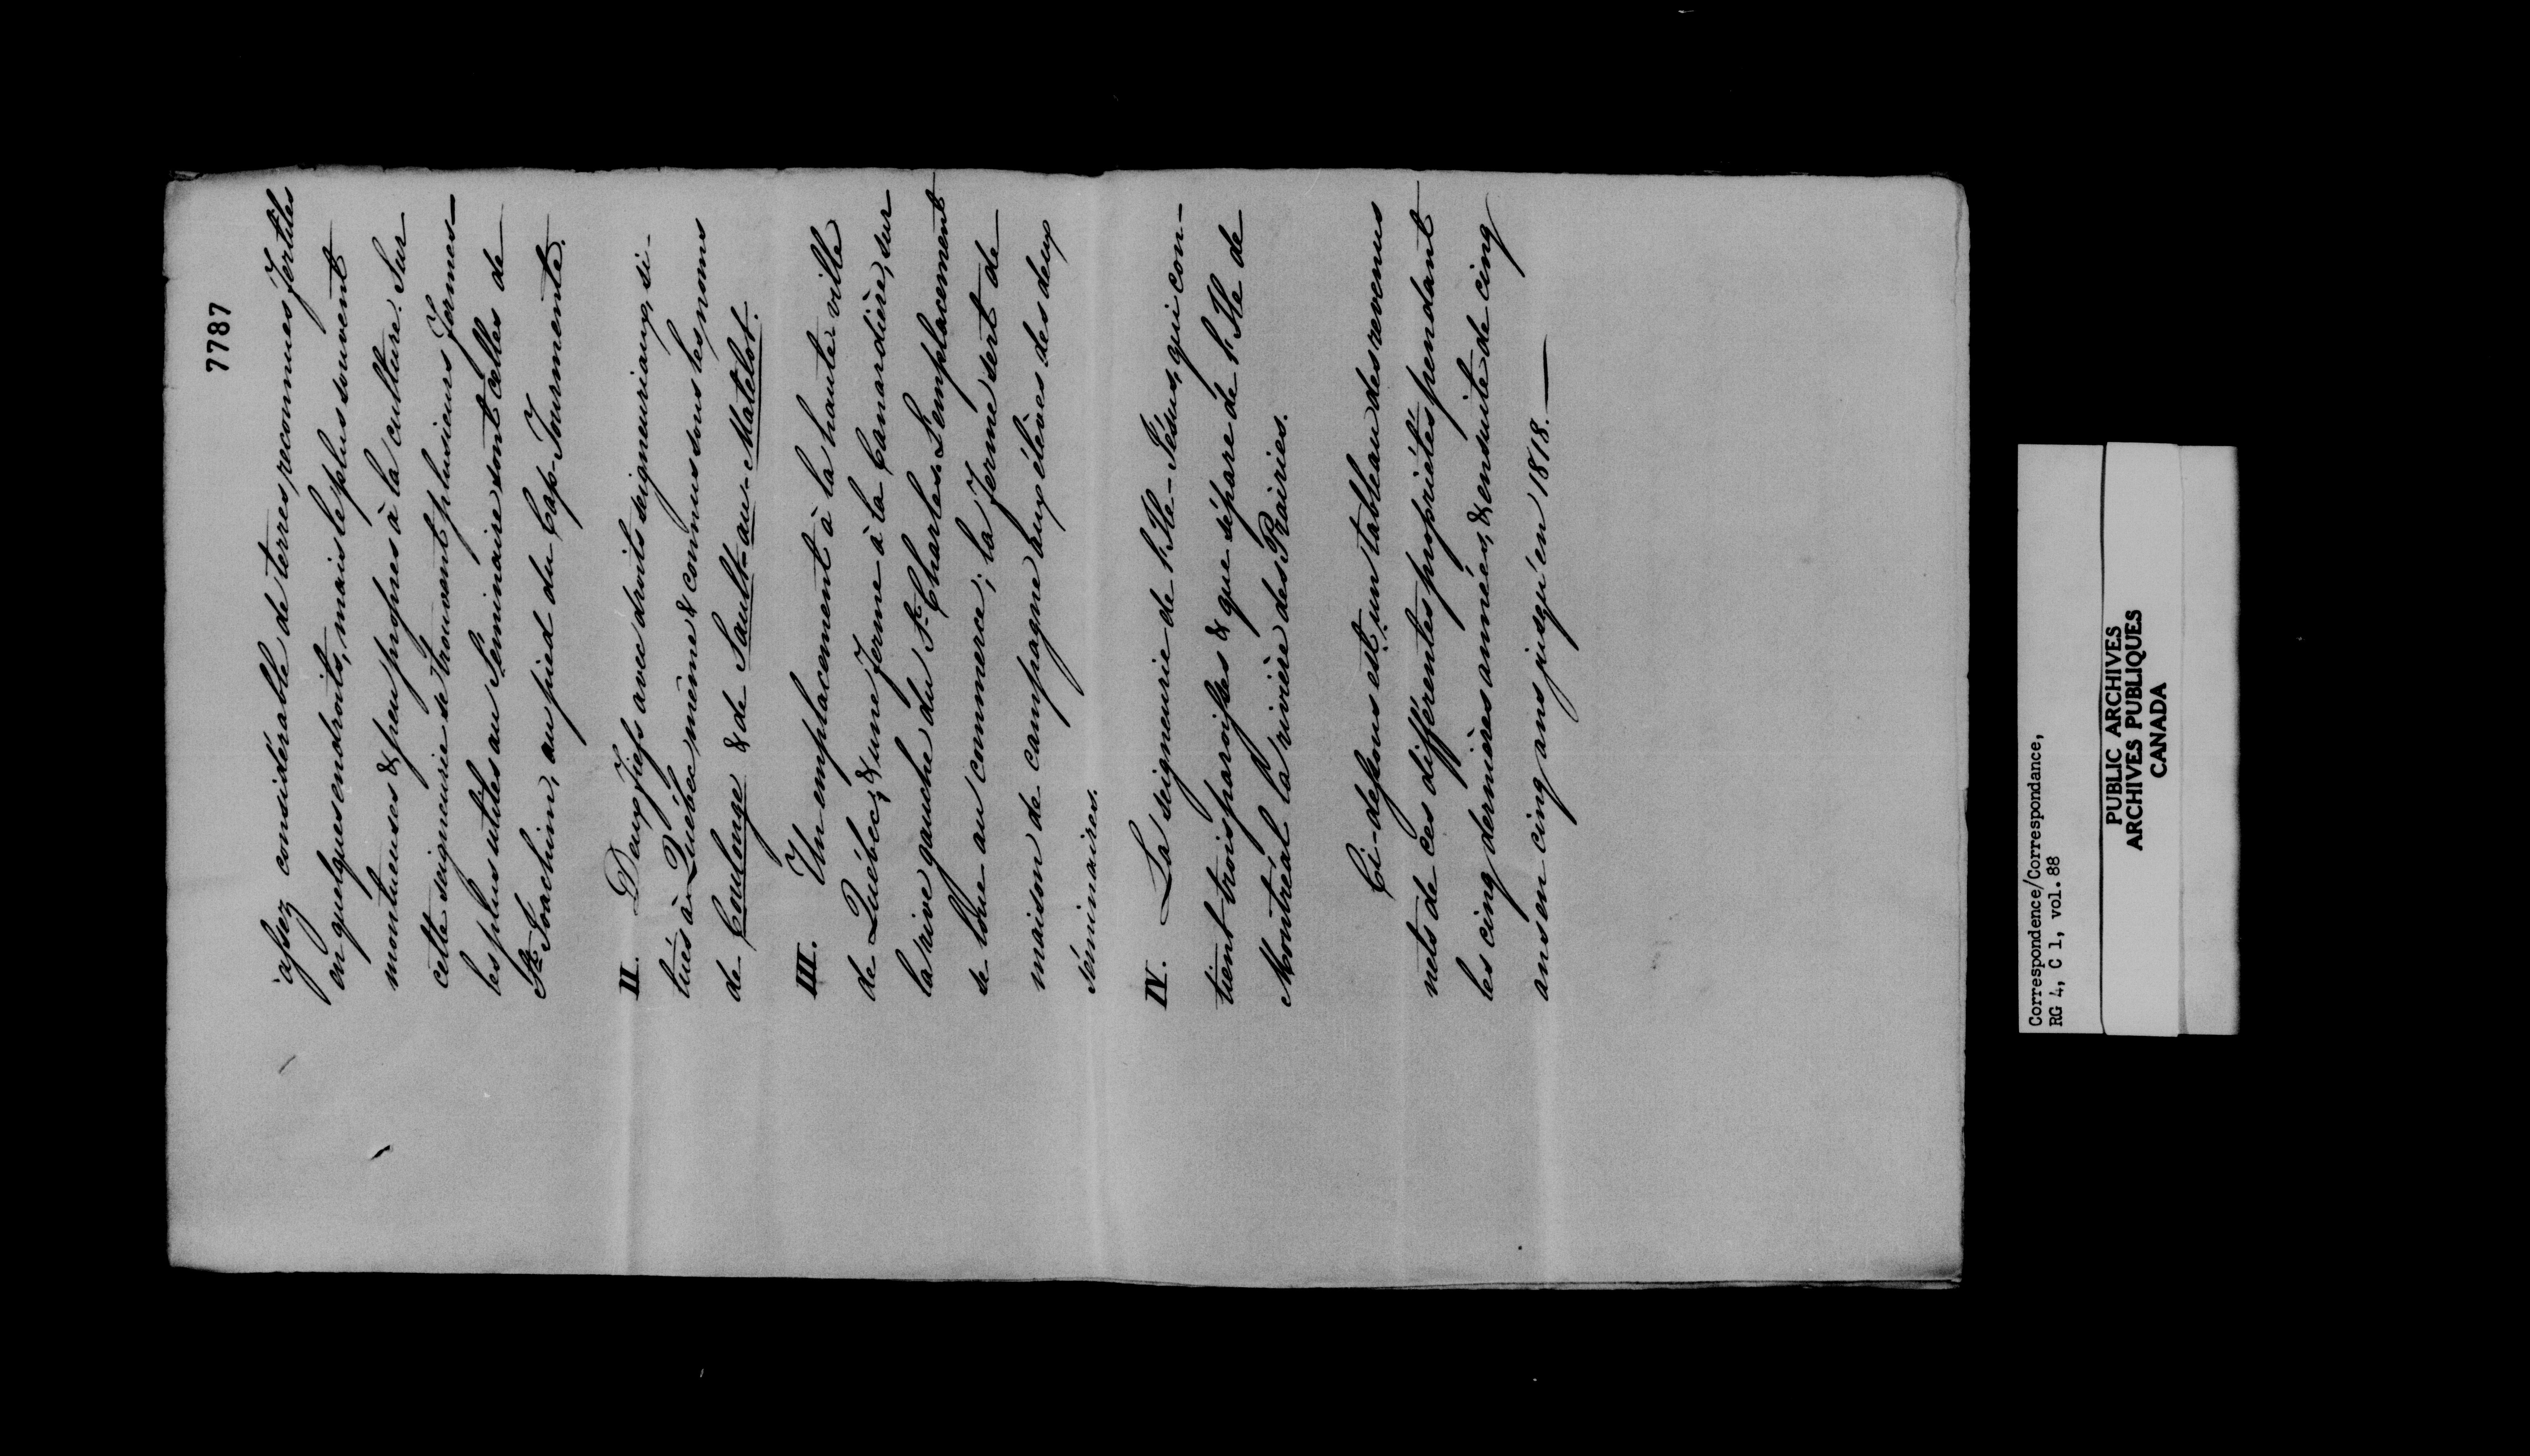 7787
assez considérable de terres, reconnues fertiles
en quelques endroits, mais le plus souvent
montueuses & peu propres à la culture. Sur
cette seigneurie se trouvent plusieurs fermes
les plus utiles au Séminaire sont celles de
St. Joachim, au pied du Cap-Tourmente.
II. Deux fiefs avec droits seigneuriaux, si-
tués à Québec même & connus sous les noms
de Coulonge & de Sault-au-Matelot.
III. Un emplacement à la haute ville
de Québec; & une ferme à la Canardière, sur
la rive gauche du St. Charles. L'emplacement
se loue au commerce; la ferme sert de
maison de campagne aux élèves des deux
séminaires.
IV. La seigneurie de l'Ile-Jésus, qui con-
tient trois paroisses & que sépare de l'Ile de
Montréal la rivière des Prairies.
Ci-dessous est un tableau des revenus
nets de ces différentes propriétés pendant
les cinq dernières années, & ensuite de cinq
ans en cinq ans jusqu'en 1818.
Correspondence/Correspondance,
RG 4, C 1, vol. 88
PUBLIC ARCHIVES
ARCHIVES PUBLIQUES
CANADA